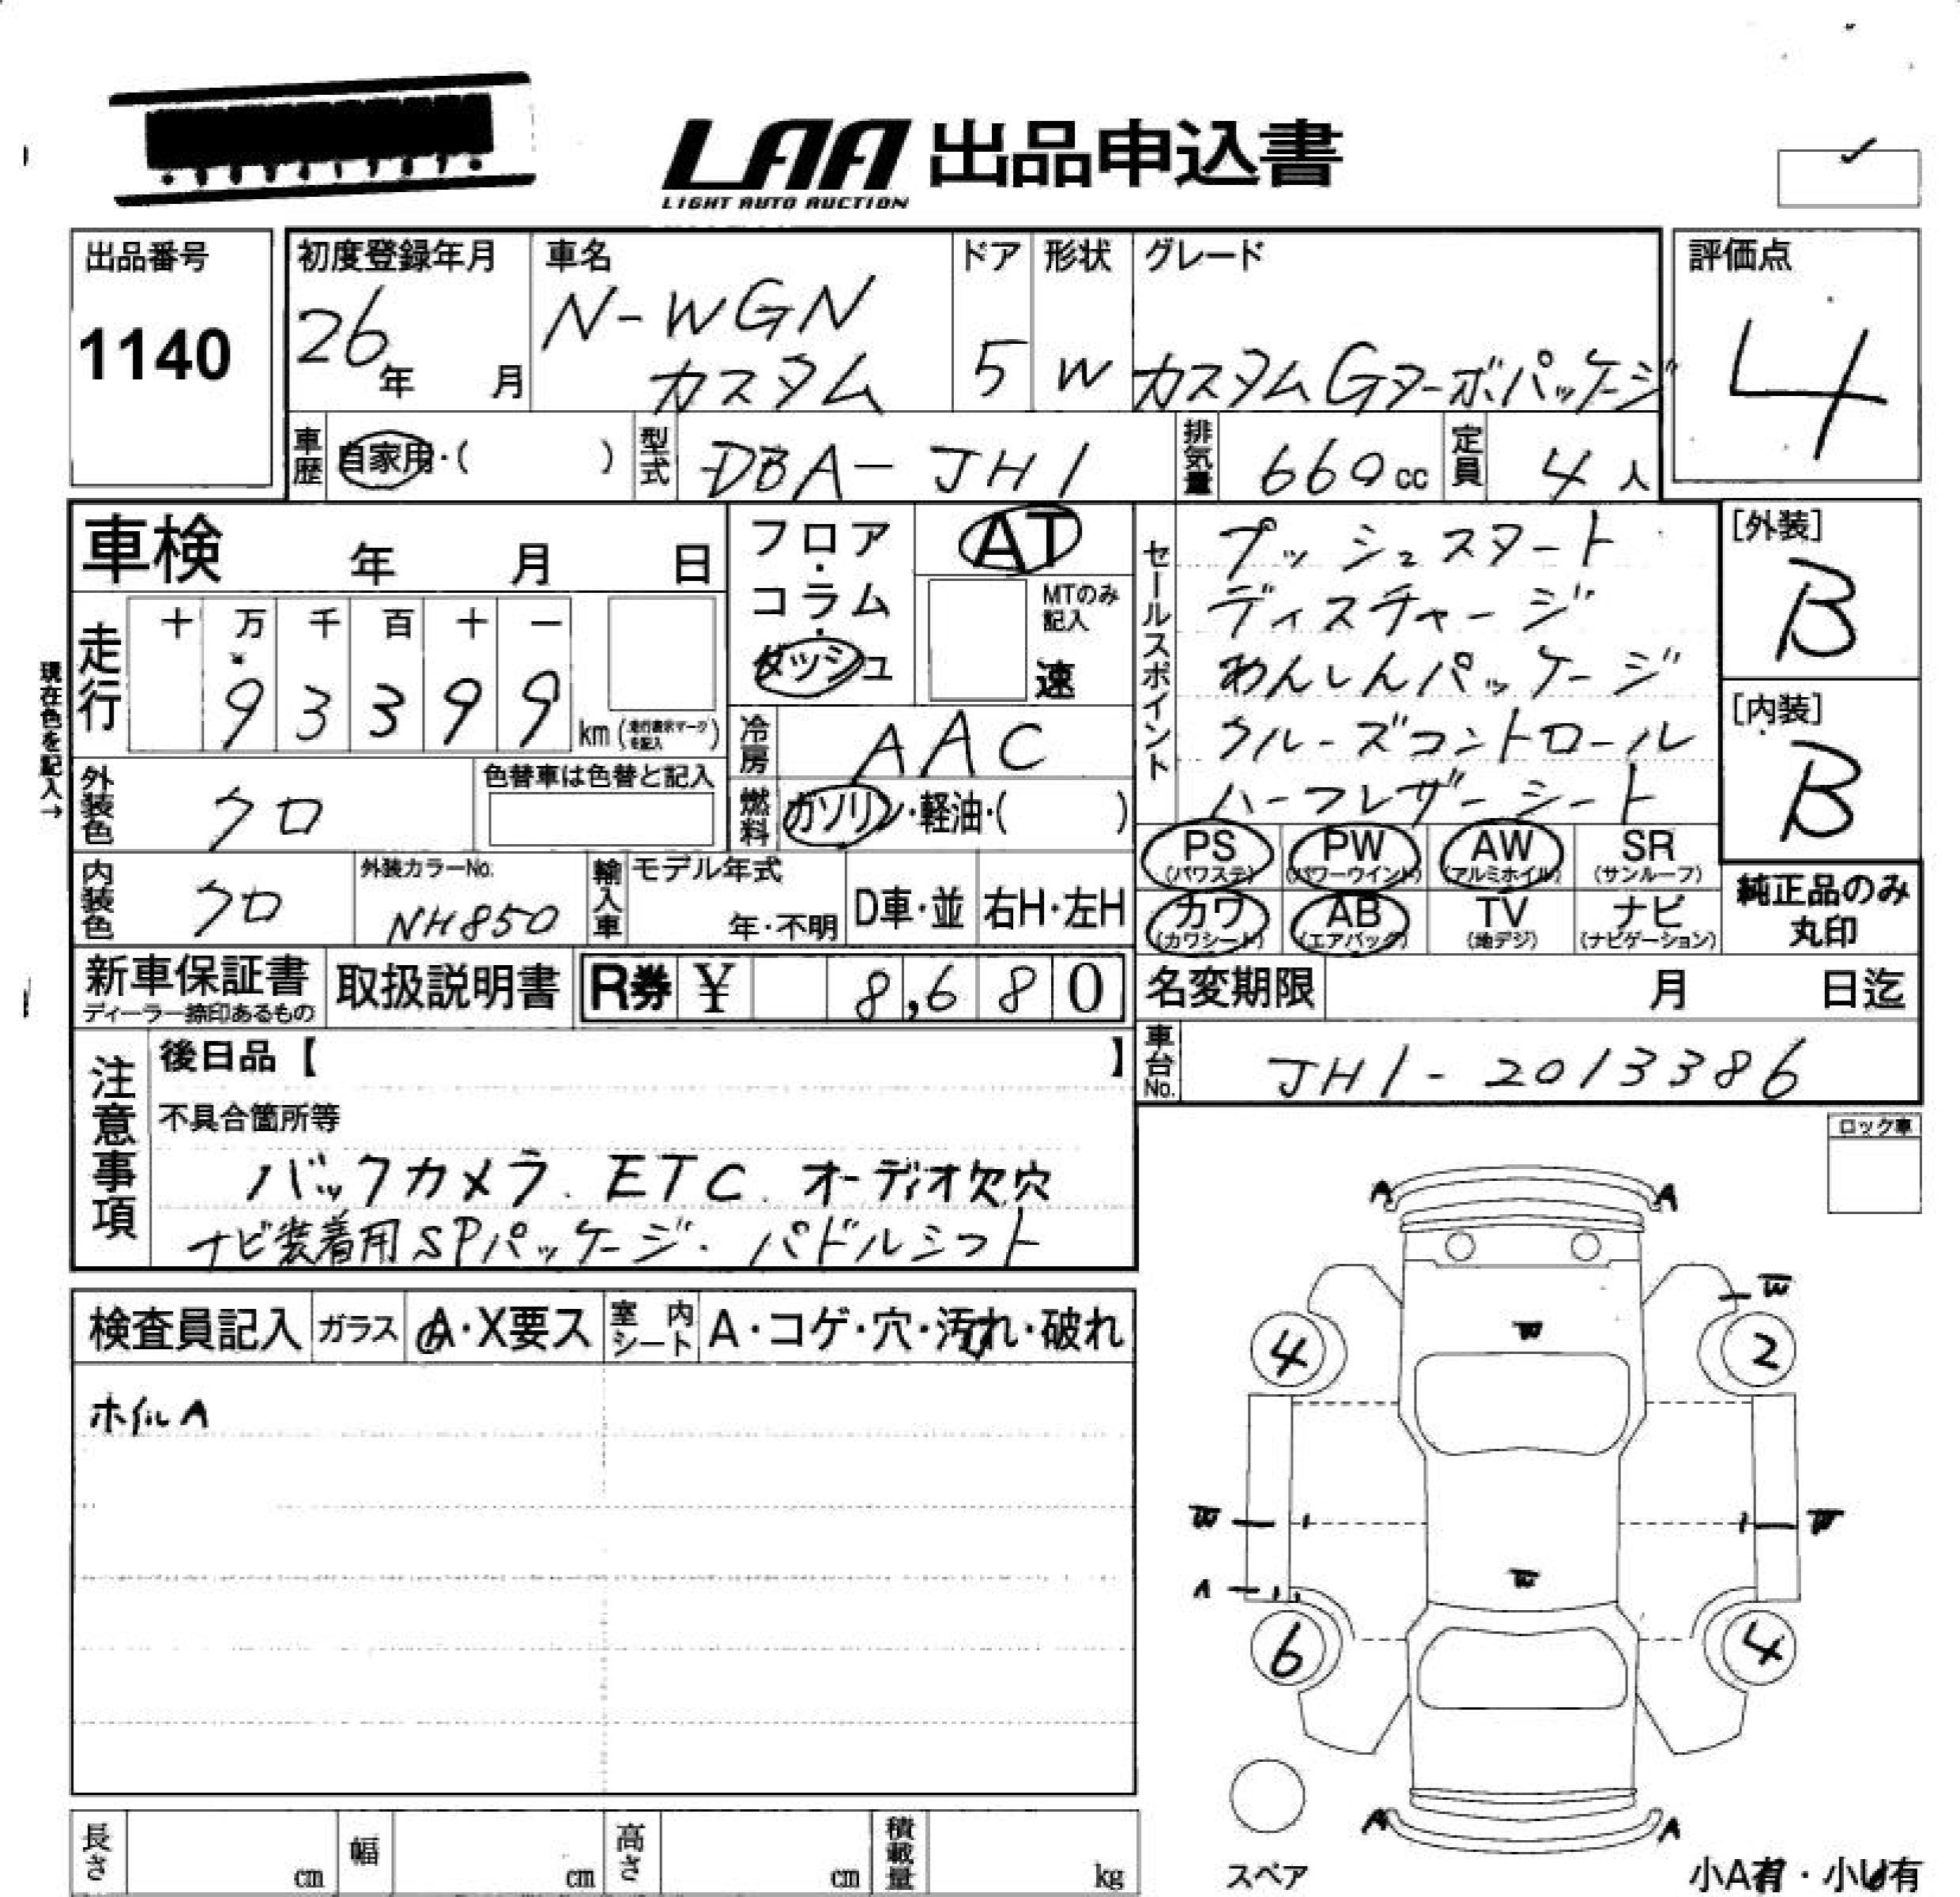 LAA 出品申込書
LIGHT AUTO AUCTION
出品番号
1140
初度登録年月
26年 月
車名
N-WGN
カスタム
ドア
5
形状
W
グレード
カスタムGターボパッケージ
評価点
4
車歴 自家用・( )
型式 DBA-JH1
排気量 660cc
定員 4人
車検 年 月 日
フロア・コラム・ダッシュ
AT
MTのみ記入
速
セールスポイント
プッシュスタート
ディスチャージ
あんしんパッケージ
クルーズコントロール
ハーフレザーシート
[外装]
B
[内装]
B
現在色を記入→
走行
十 万 千 百 十 一
9 3 3 9 9
km(走行表示マークを記入)
冷房 AAC
外装色 クロ
色替車は色替と記入
燃料 ガソリン・軽油・( )
PS (パワステ)
PW (パワーウインド)
AW (アルミホイル)
SR (サンルーフ)
カワ (カワシート)
AB (エアバッグ)
TV (地デジ)
ナビ (ナビゲーション)
純正品のみ
丸印
内装色 クロ
外装カラーNo.
NH850
輸入車
モデル年式
年・不明
D車・並
右H・左H
新車保証書
ディーラー捺印あるもの
取扱説明書
R券 ¥ 8,680
名変期限 月 日迄
車台No. JH1-2013386
注意事項
後日品【 】
不具合箇所等
バックカメラ. ETC. オーディオ欠穴
ナビ装着用SPパッケージ. パドルシフト
ロック車
検査員記入
ガラス A・X要ス
室内シート A・コゲ・穴・汚れ・破れ
ホイルA
A A
W
W
4 2
W W
W
A
6 4
A A
スペア
小A有・小U有
長さ cm
幅 cm
高さ cm
積載量 kg